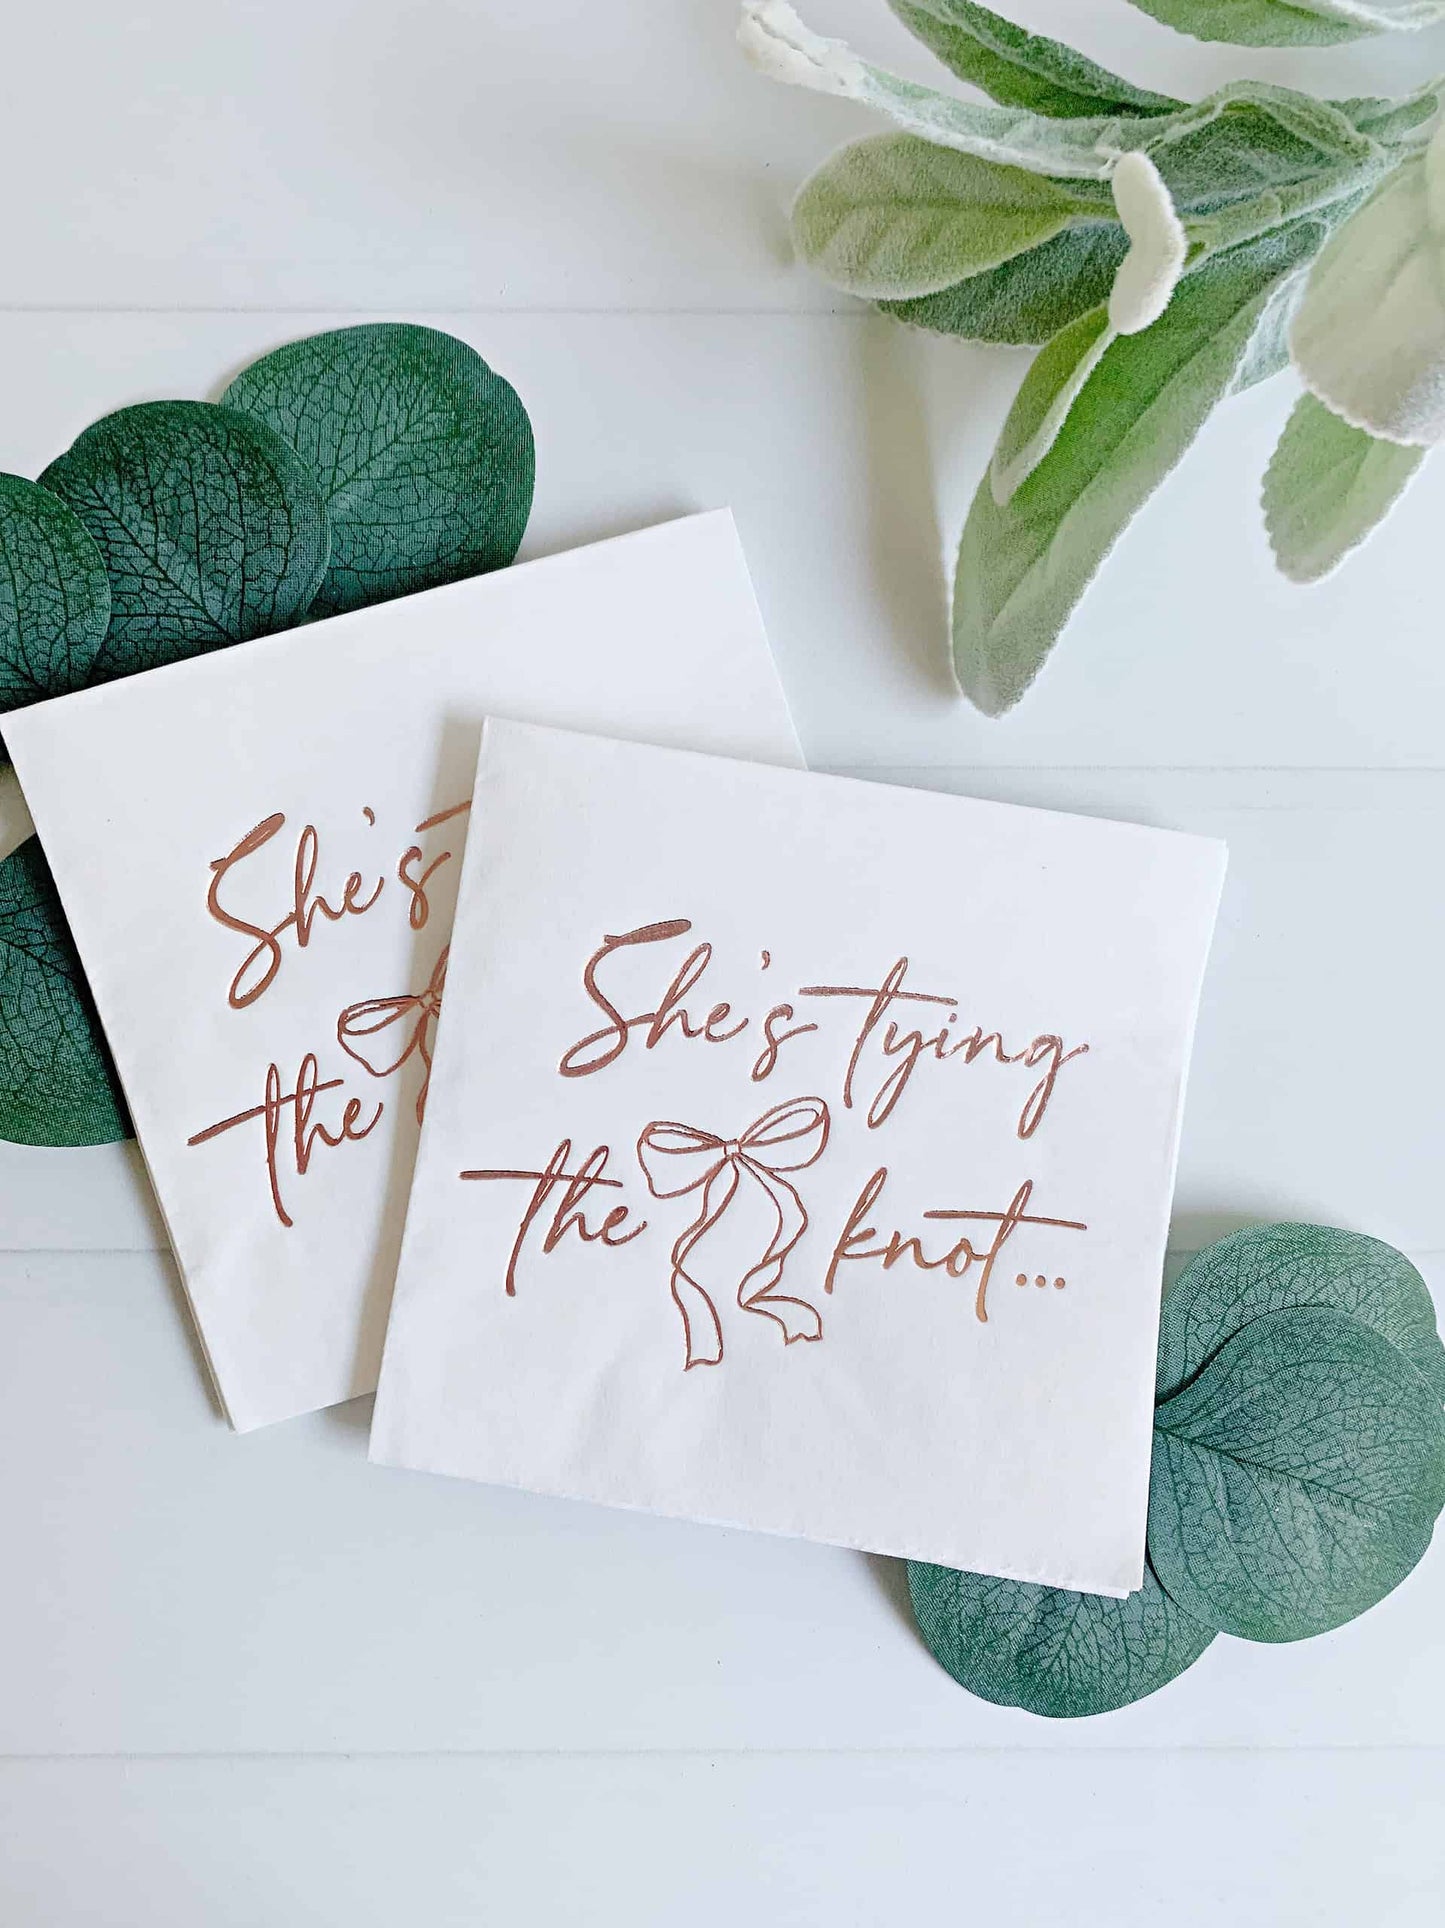 She's
the
She's tying
the knot...